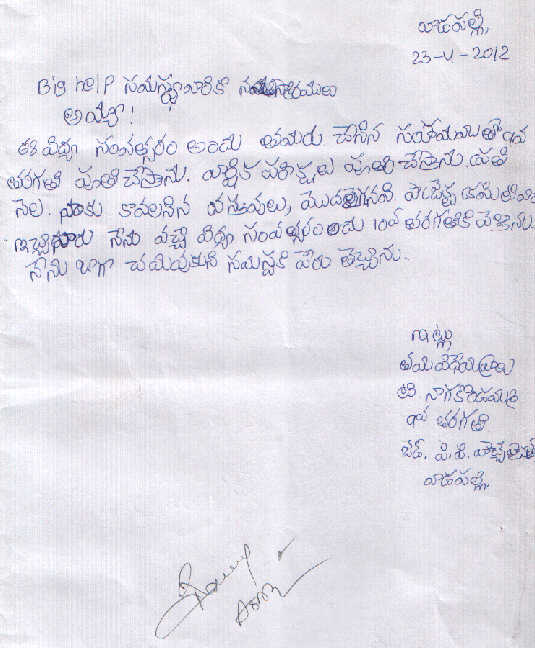 వాడపల్లి,
23-V-2012
Big help సమస్థ వారికి నమస్కారములు
అయ్యా!
ఈ విద్యా సంవత్సరం అందు తమరు చేసిన సహాయముతో 9వ
తరగతి పూర్తి చేసాను. వార్షిక పరీక్షలు పూర్తి చేసాను. ప్రతి
నెల నాకు కావలసిన వస్తువులు, మొదలైనవి
ఇచ్చినారు నేను వచ్చే విద్యా సంవత్సరం అందు 10వ తరగతికి వెళ్తాను.
నేను బాగా చదివుకుని సమస్థకి పేరు తెచ్చెను.
ఇట్లు
తమ విధేయురాలు
టి. నాగ
9వ తరగతి
జెడ్. పి. హె.
వాడపల్లి.